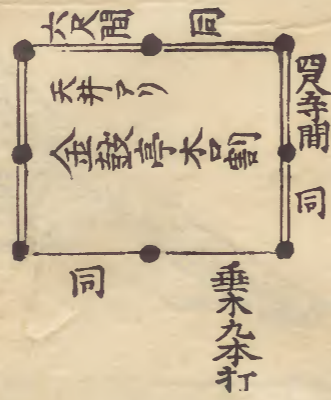 六尺間
同
四尺五寸間
同
天井アリ
金鼓亭木口割
同
垂木九本打